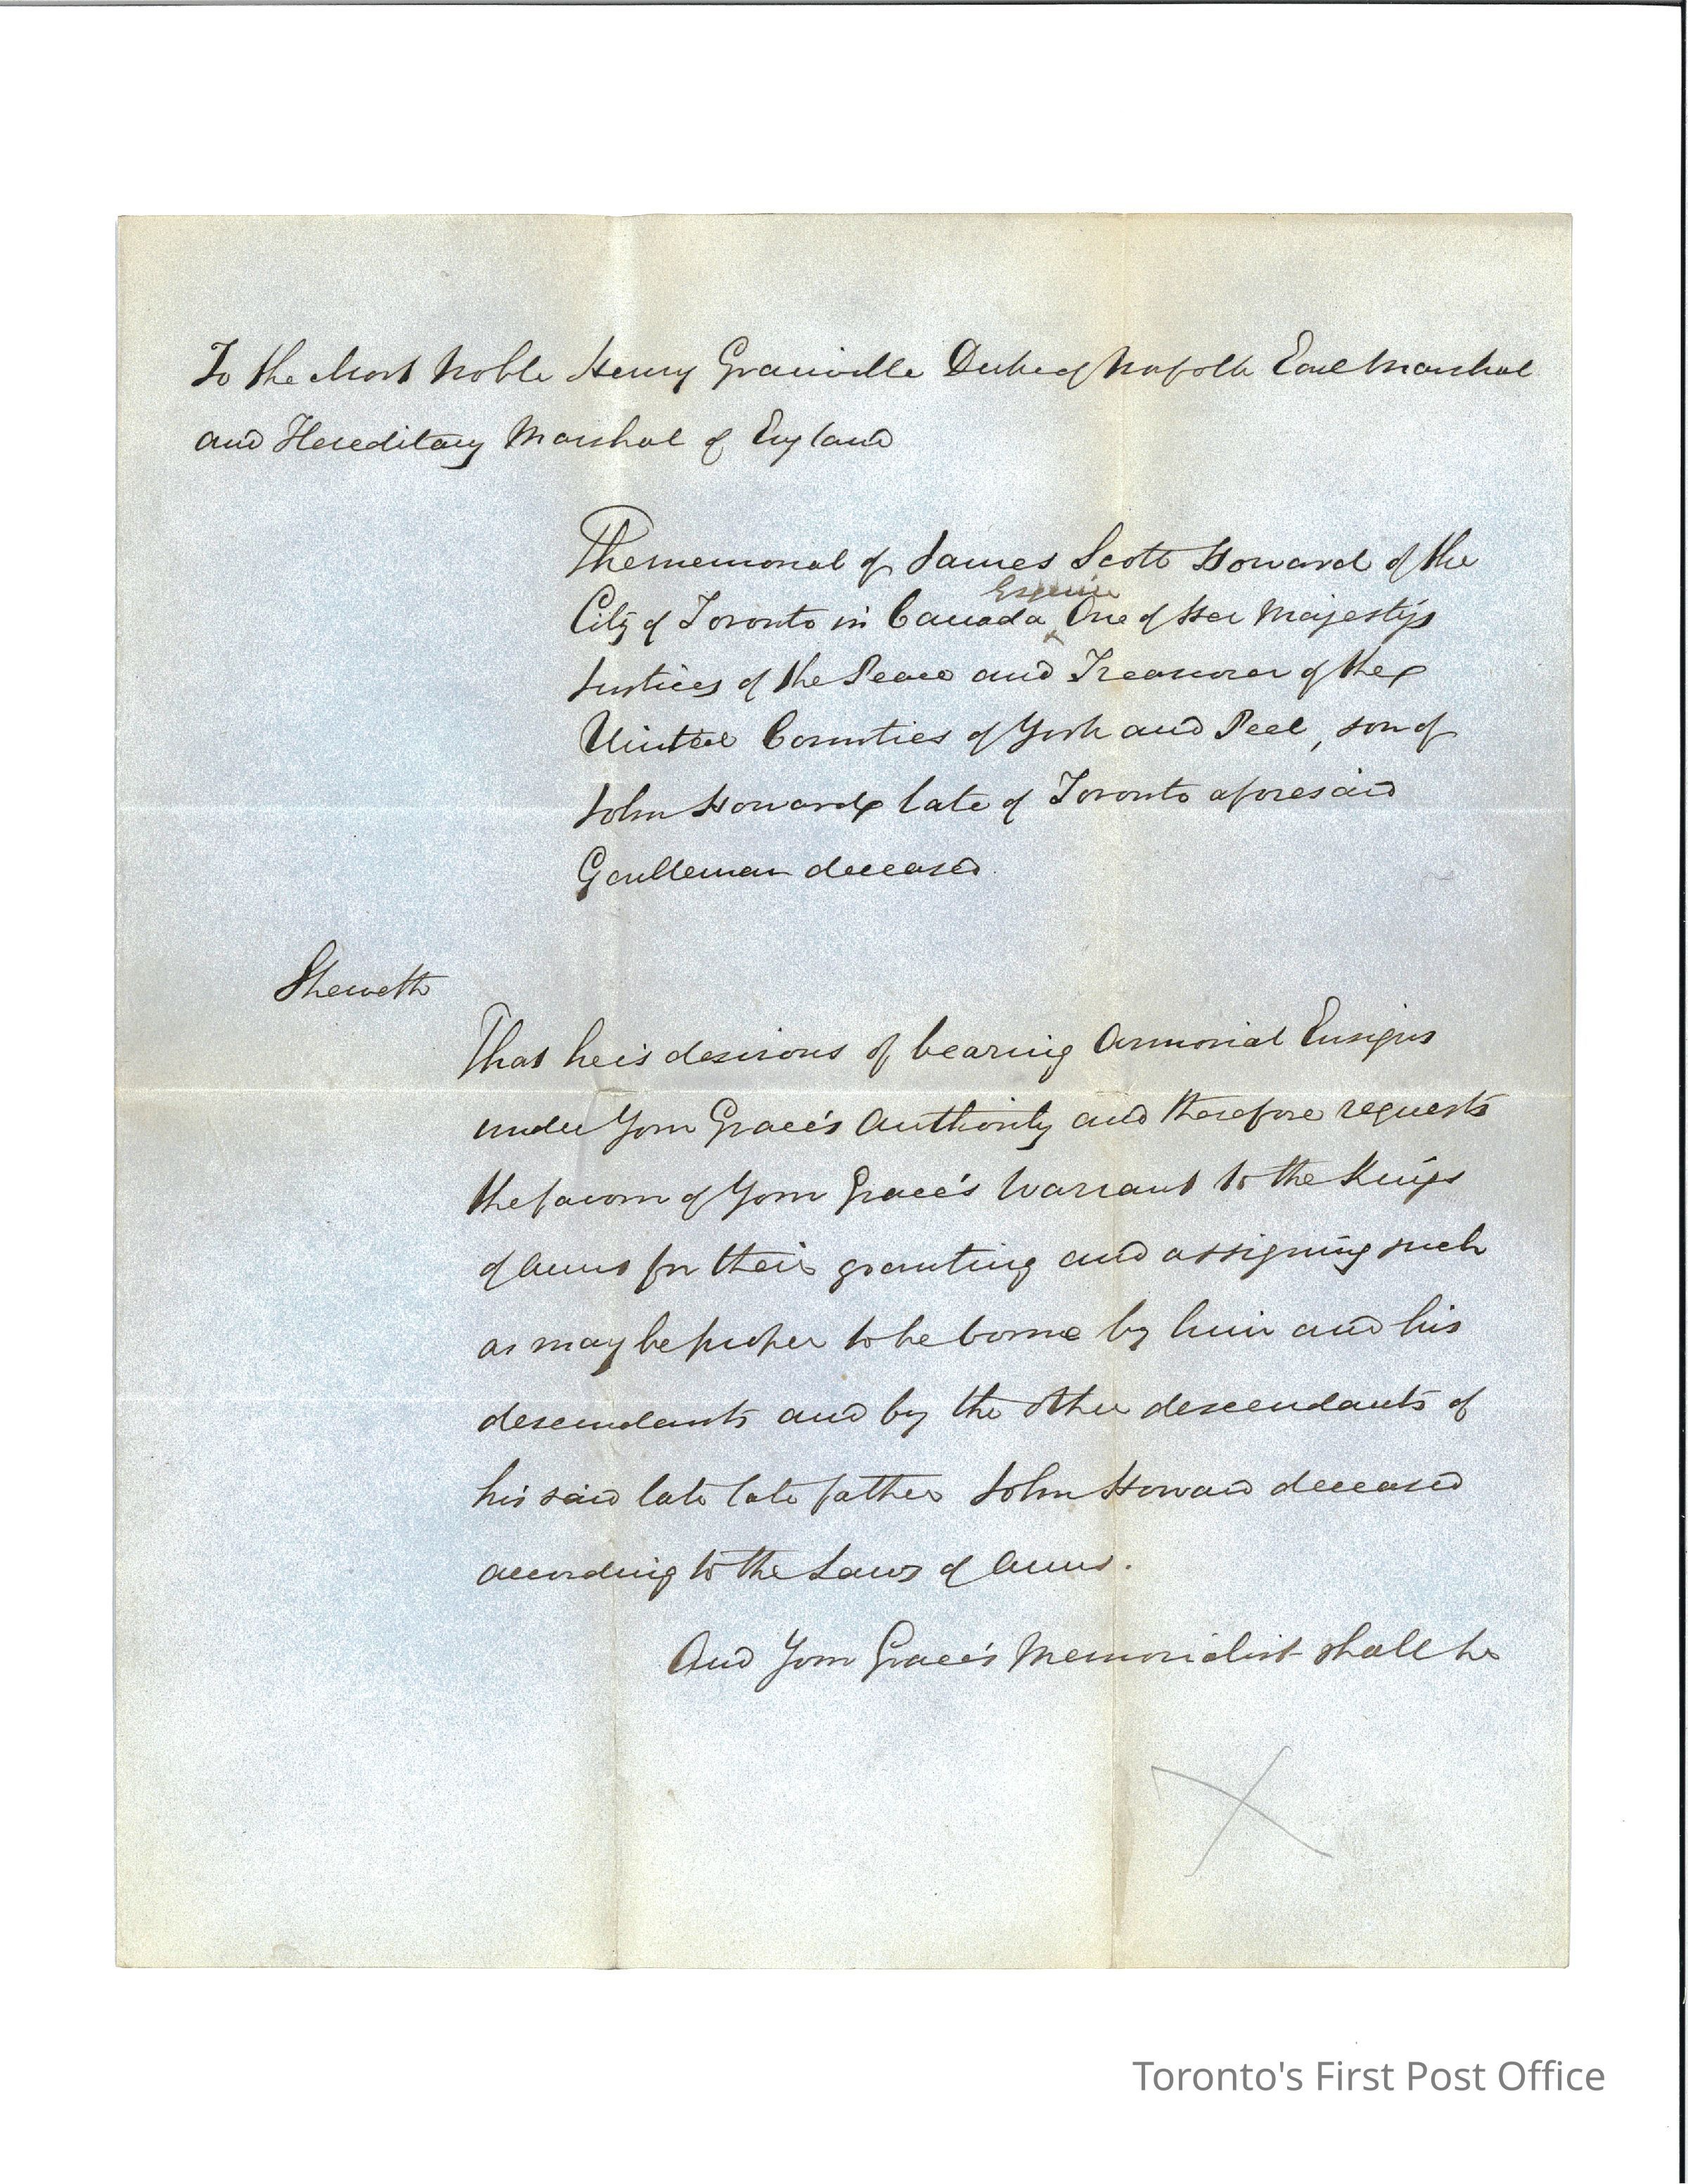 To the Most Noble Henry Granville Duke of Norfolk Earl Marshal
and Hereditary Marshal of England
The memorial of James Scott Howard of the
Esquire
City of Toronto in Canada ‸ One of Her Majesty's
Justices of the Peace and Treasurer of the
United Counties of York and Peel, son of
John Howard late of Toronto aforesaid
Gentleman deceased.
Sheweth
That he is desirous of bearing Armorial Ensigns
under Your Grace's Authority and therefore requests
the favour of Your Grace's Warrant to the Kings
of Arms for their granting and assigning such
as may be proper to be borne by him and his
descendants and by the other descendants of
his said late late father John Howard deceased
according to the Laws of Arms.
And Your Grace's Memorialist shall be
Toronto's First Post Office